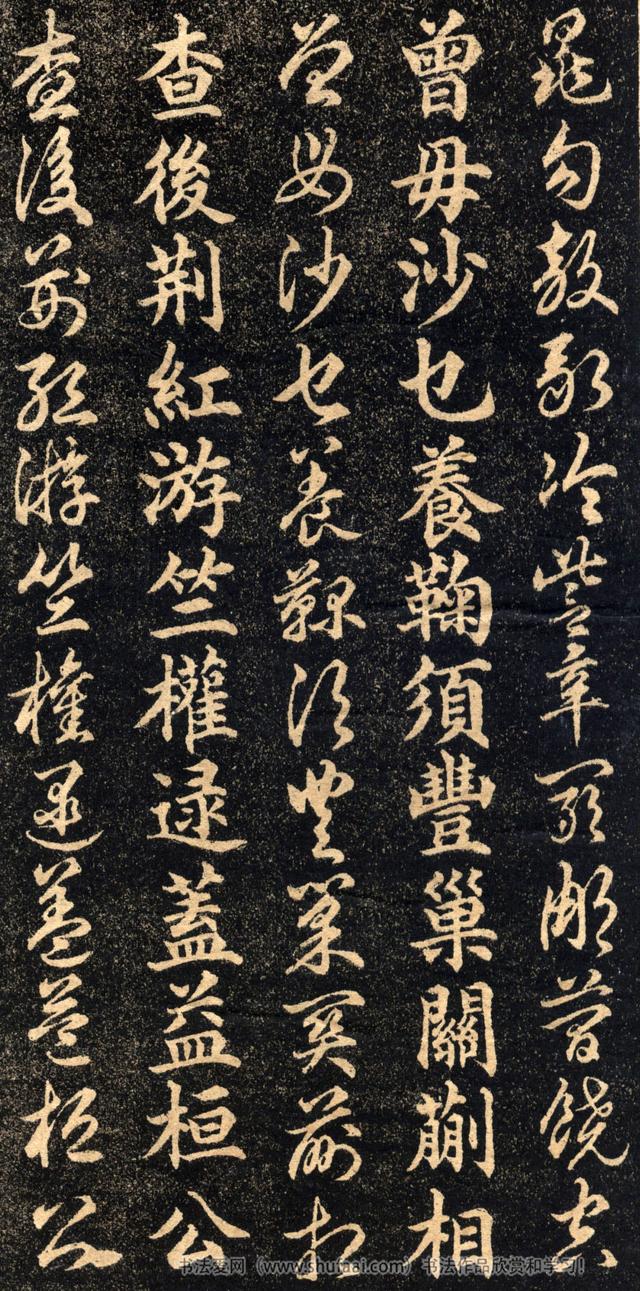 晁勾敖融冷訾辛闞那簡饒空
曾毋沙乜養鞠須豐巢關蒯相
曾毋沙乜養鞠須豐巢關蒯相
查後荆紅游竺權逯蓋益桓公
查後荆紅游竺權逯蓋益桓公
书法爱网（www.shufaai.com）书法作品欣赏和学习！